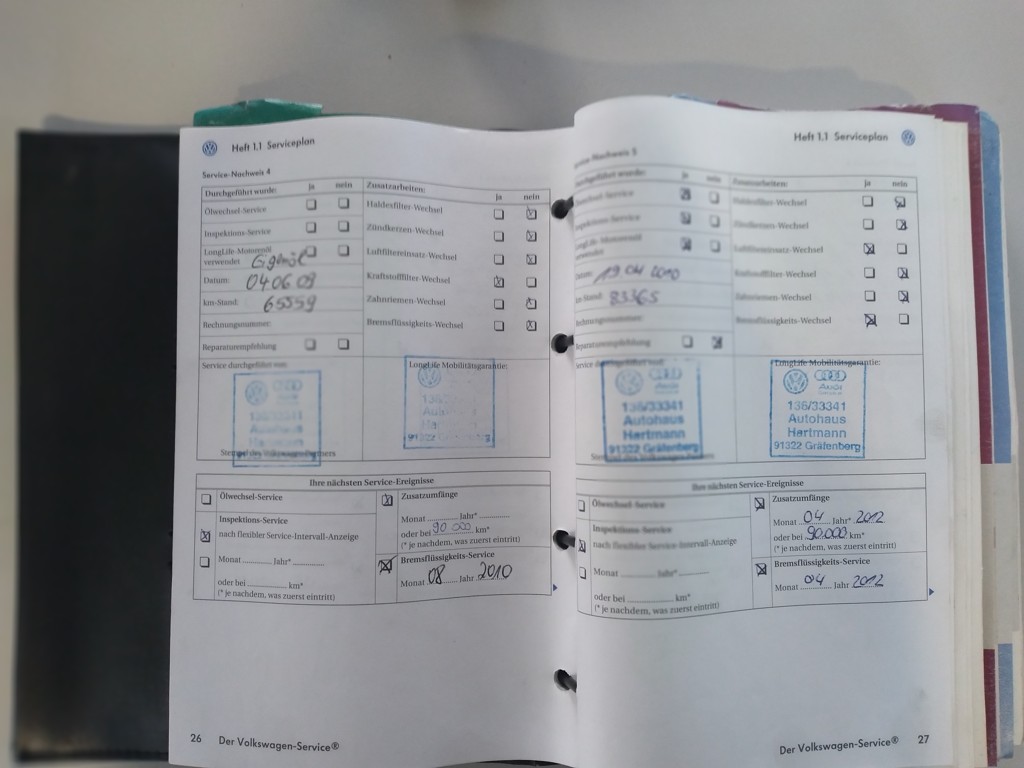 Heft 1.1 Serviceplan
Service-Nachweis 4
Durchgeführt wurde: ja nein
Ölwechsel-Service
Inspektions-Service
LongLife-Motorenöl
verwendet
Datum: 04.06.09
km-Stand: 65559
Rechnungsnummer:
Reparaturempfehlung
Service durchgeführt von:
Stempel des Volkswagen Partners
Zusatzarbeiten: ja nein
Haldexfilter-Wechsel
Zündkerzen-Wechsel
Luftfiltereinsatz-Wechsel
Kraftstofffilter-Wechsel
Zahnriemen-Wechsel
Bremsflüssigkeits-Wechsel
LongLife Mobilitätsgarantie:
91322
Ihre nächsten Service-Ereignisse
Ölwechsel-Service
Inspektions-Service
nach flexibler Service-Intervall-Anzeige
Monat ............ Jahr* ............
oder bei ............ km*
(* je nachdem, was zuerst eintritt)
Zusatzumfänge
Monat ............ Jahr* ............
oder bei 90.000 km*
(* je nachdem, was zuerst eintritt)
Bremsflüssigkeits-Service
Monat 08 Jahr 2010
26 Der Volkswagen-Service®
Heft 1.1 Serviceplan
Service-Nachweis 5
Durchgeführt wurde: ja nein
Ölwechsel-Service
Inspektions-Service
LongLife-Motorenöl
verwendet
Datum: 19 04 2010
km-Stand: 83365
Rechnungsnummer:
Reparaturempfehlung
Service durchgeführt von:
Audi
136/33341
Autohaus
Hartmann
91322 Gräfenberg
Stempel des Volkswagen Partners
Zusatzarbeiten: ja nein
Haldexfilter-Wechsel
Zündkerzen-Wechsel
Luftfiltereinsatz-Wechsel
Kraftstofffilter-Wechsel
Zahnriemen-Wechsel
Bremsflüssigkeits-Wechsel
LongLife Mobilitätsgarantie:
Audi
136/33341
Autohaus
Hartmann
91322 Gräfenberg
Ihre nächsten Service-Ereignisse
Ölwechsel-Service
Inspektions-Service
nach flexibler Service-Intervall-Anzeige
Monat ............ Jahr* ............
oder bei ............ km*
(* je nachdem, was zuerst eintritt)
Zusatzumfänge
Monat 04 Jahr* 2012
oder bei 90.000 km*
(* je nachdem, was zuerst eintritt)
Bremsflüssigkeits-Service
Monat 04 Jahr 2012
Der Volkswagen-Service® 27